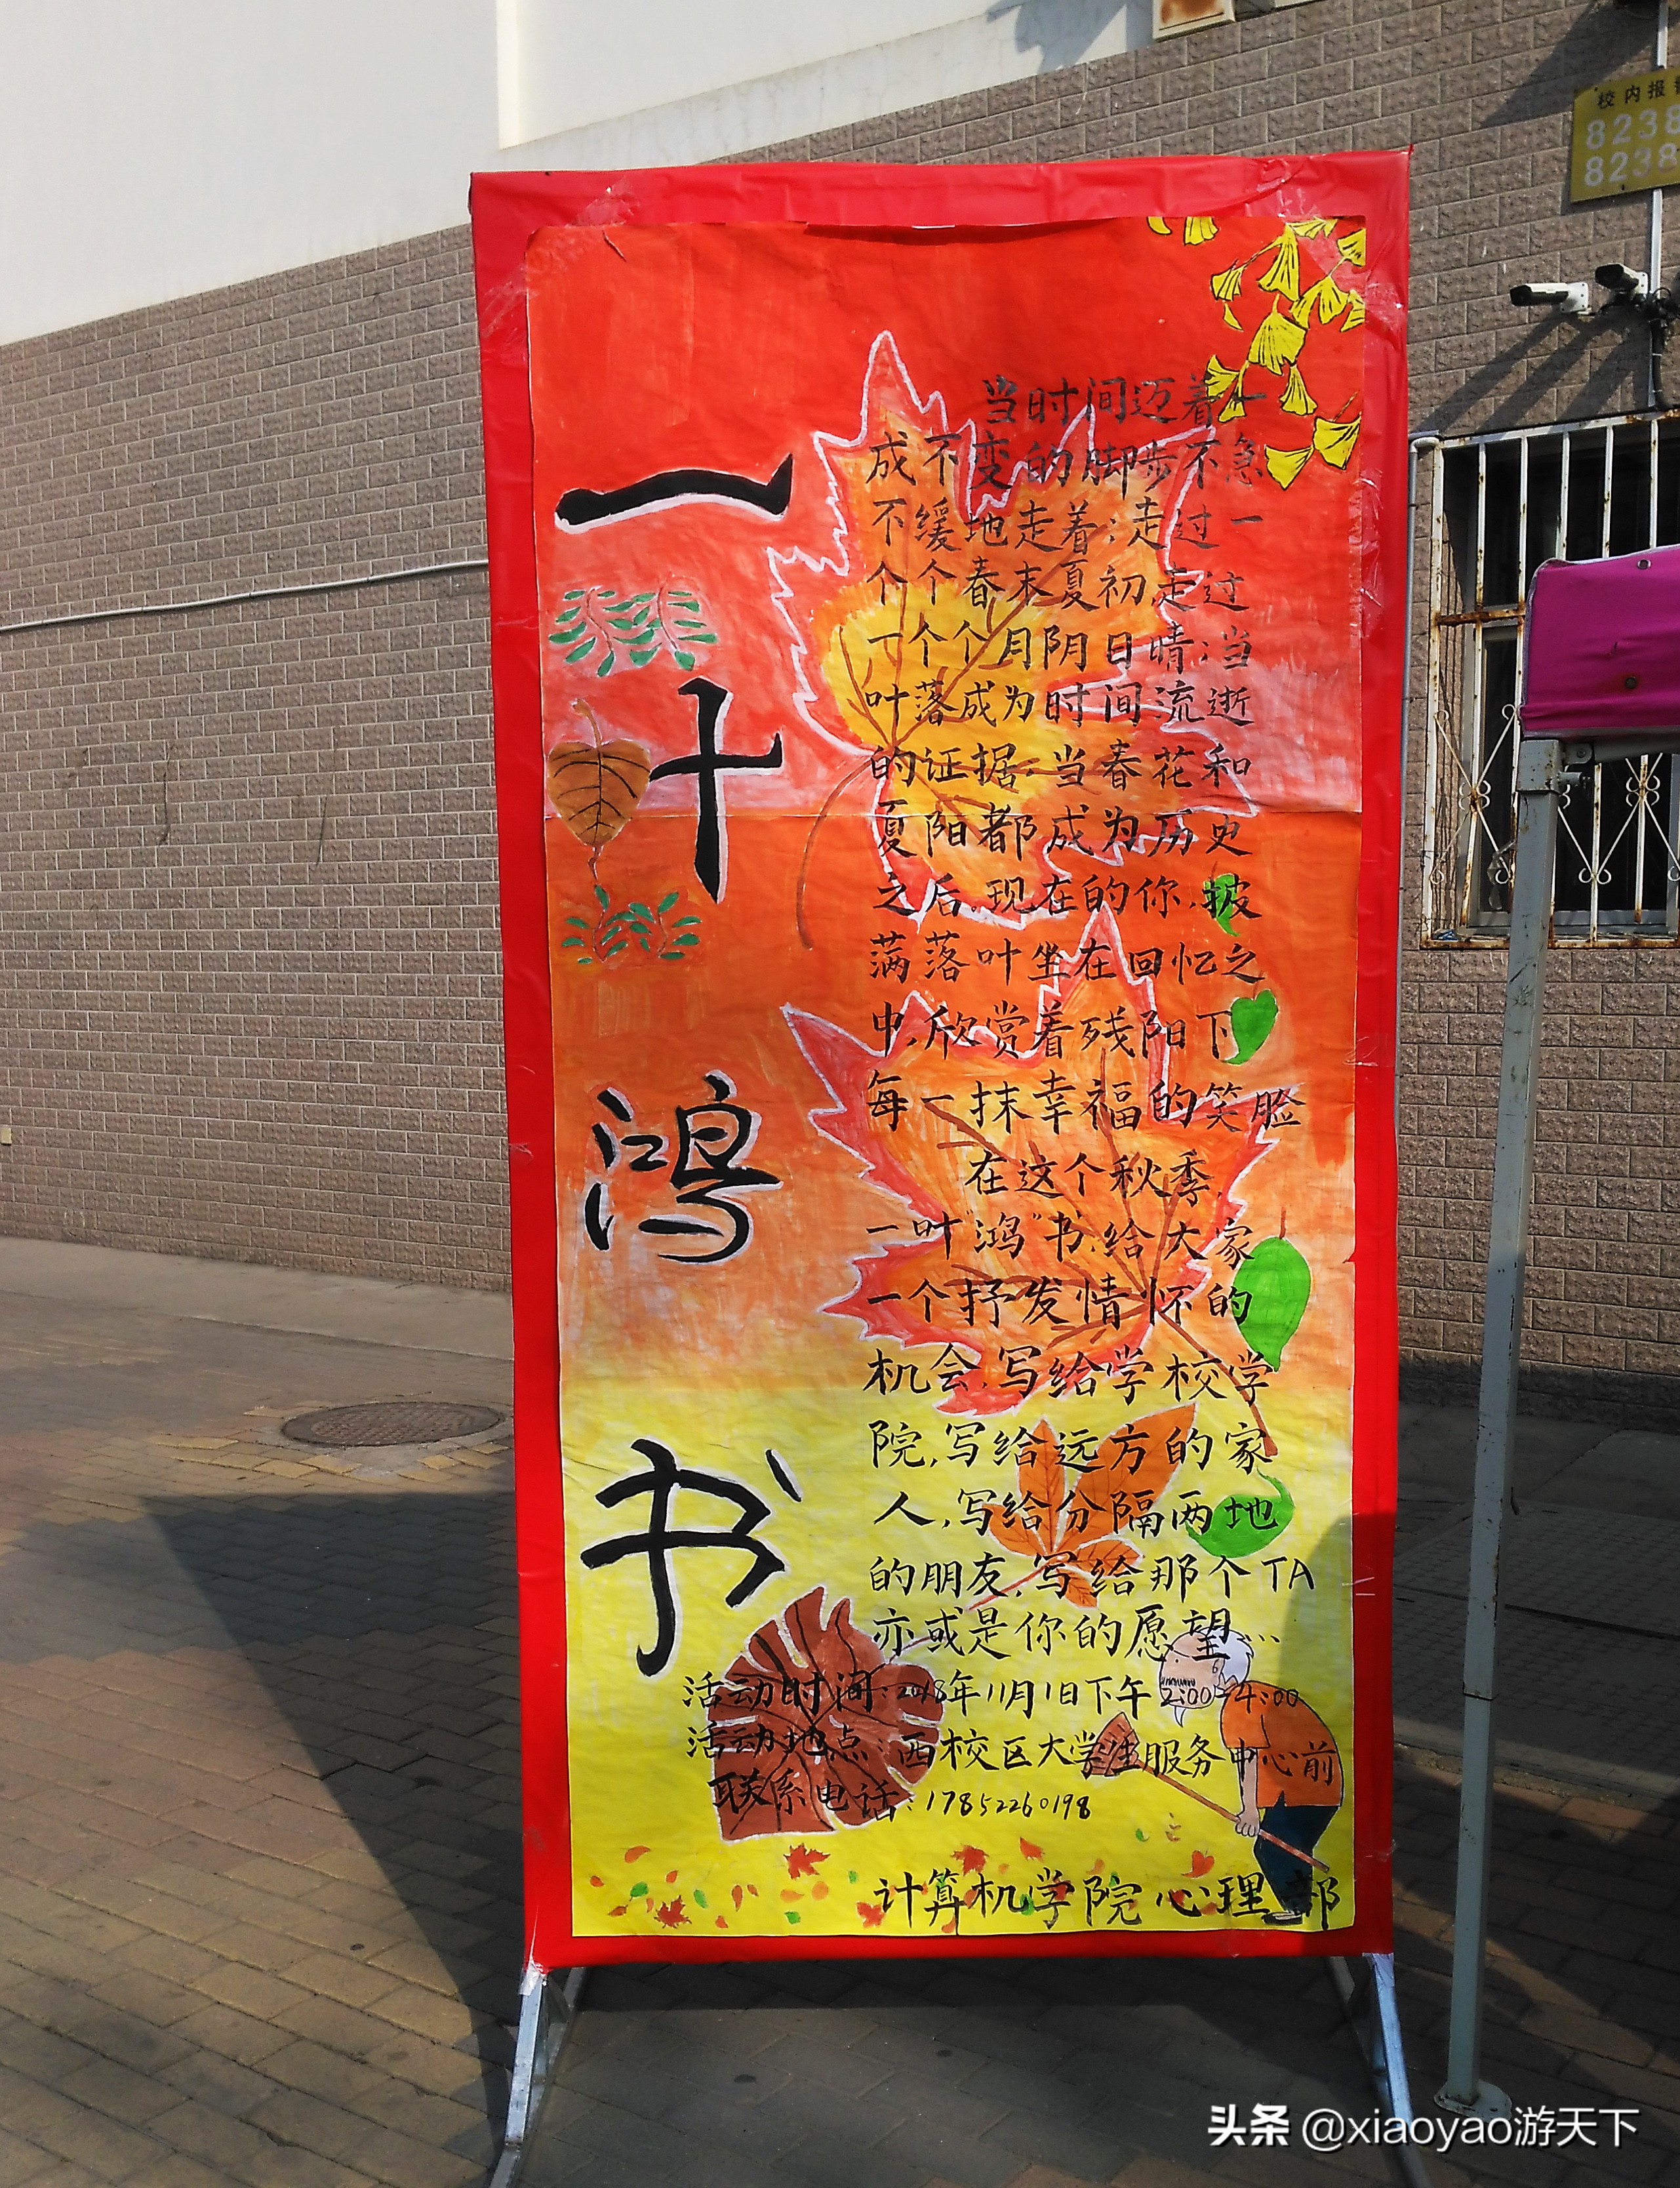 一
叶
鸿
书
当时间迈着一
成不变的脚步不急
不缓地走着;走过一
个个春末夏初,走过
一个个月阴日晴;当
叶落成为时间流逝
的证据,当春花和
夏阳都成为历史
之后。现在的你,披
满落叶坐在回忆之
中,欣赏着残阳下
每一抹幸福的笑脸
在这个秋季,
一叶"鸿"书,给大家
一个抒发情怀的
机会,写给学校学
院,写给远方的家
人,写给分隔两地
的朋友,写给那个TA
亦或是你的愿望...
活动时间:2018年11月1日下午2:00-4:00
活动地点:西校区大学生服务中心前
联系电话:17852260198
计算机学院心理部
校内报
8238
8238
头条 @xiaoyao游天下